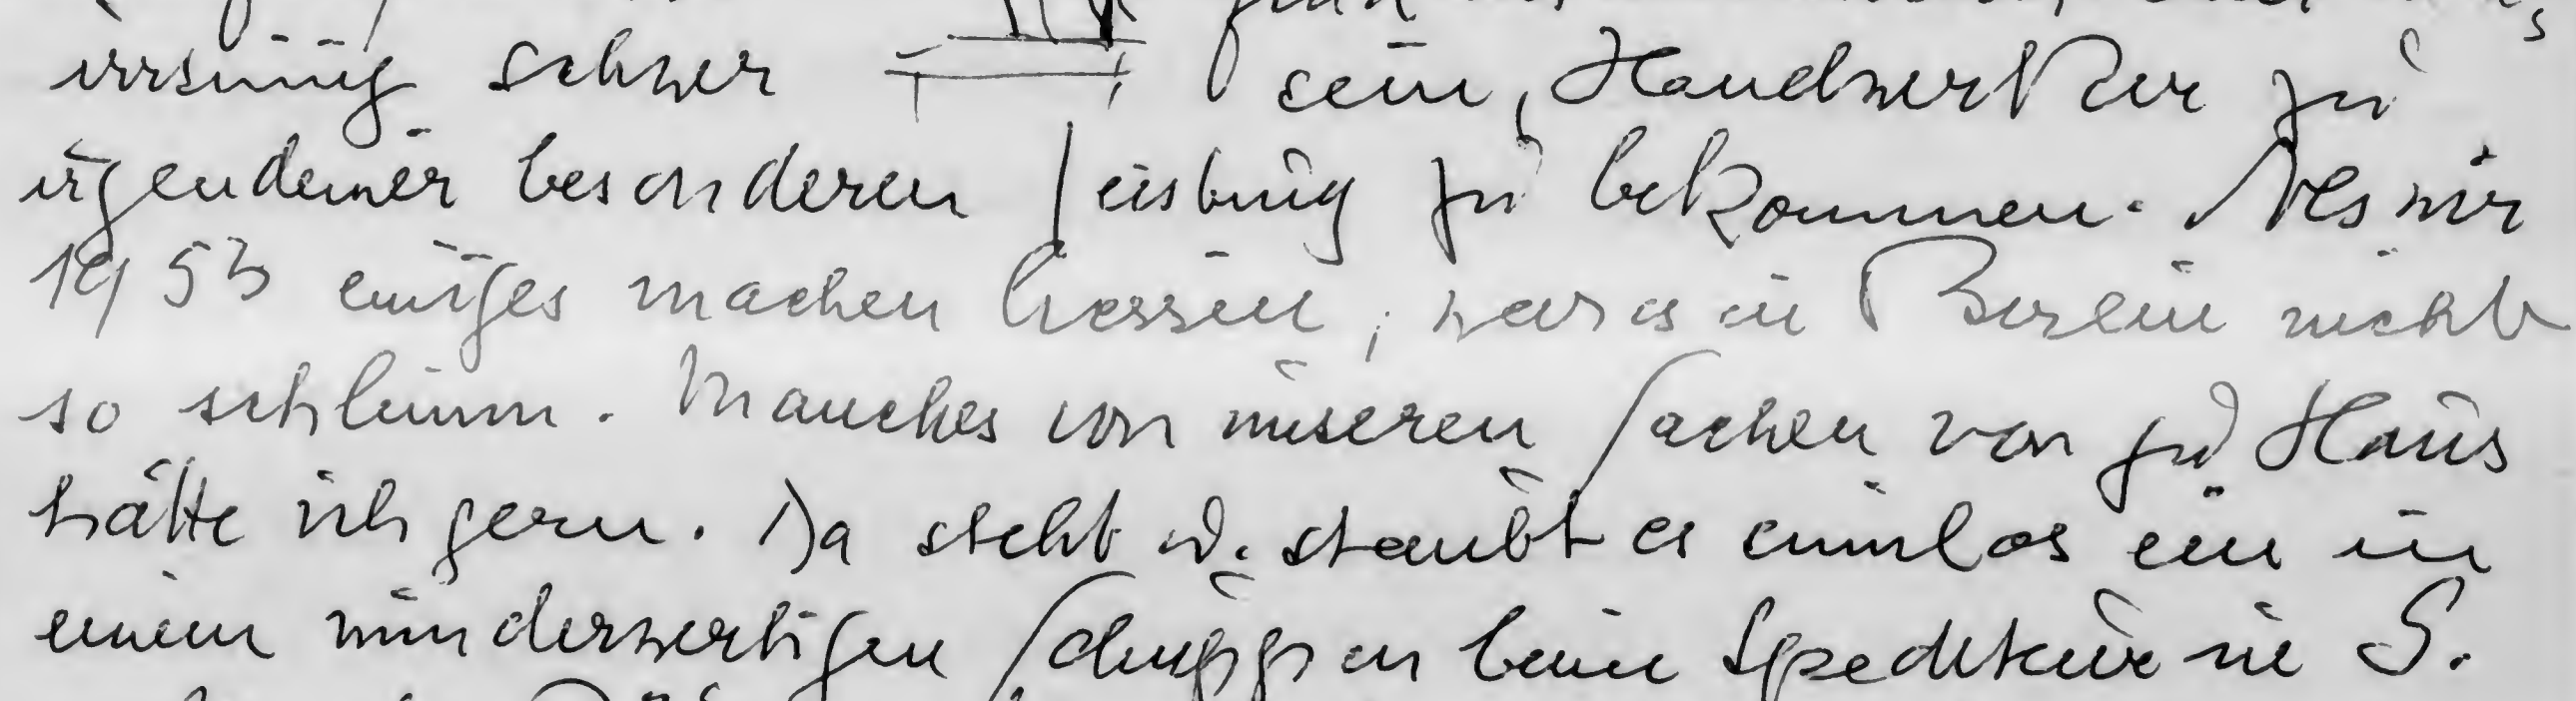 irrsinnig schwer sein, Handwerker zu
irgendeiner besonderen Leistung zu bekommen. Als wir
1953 einiges machen liessen, war es in Berlin nicht
so schlimm. Manches von unseren Sachen von zu Haus
hätte ich gern. Da steht u. staubt es sinnlos ein in
einem minderwertigen Schuppen beim Spediteur in S.